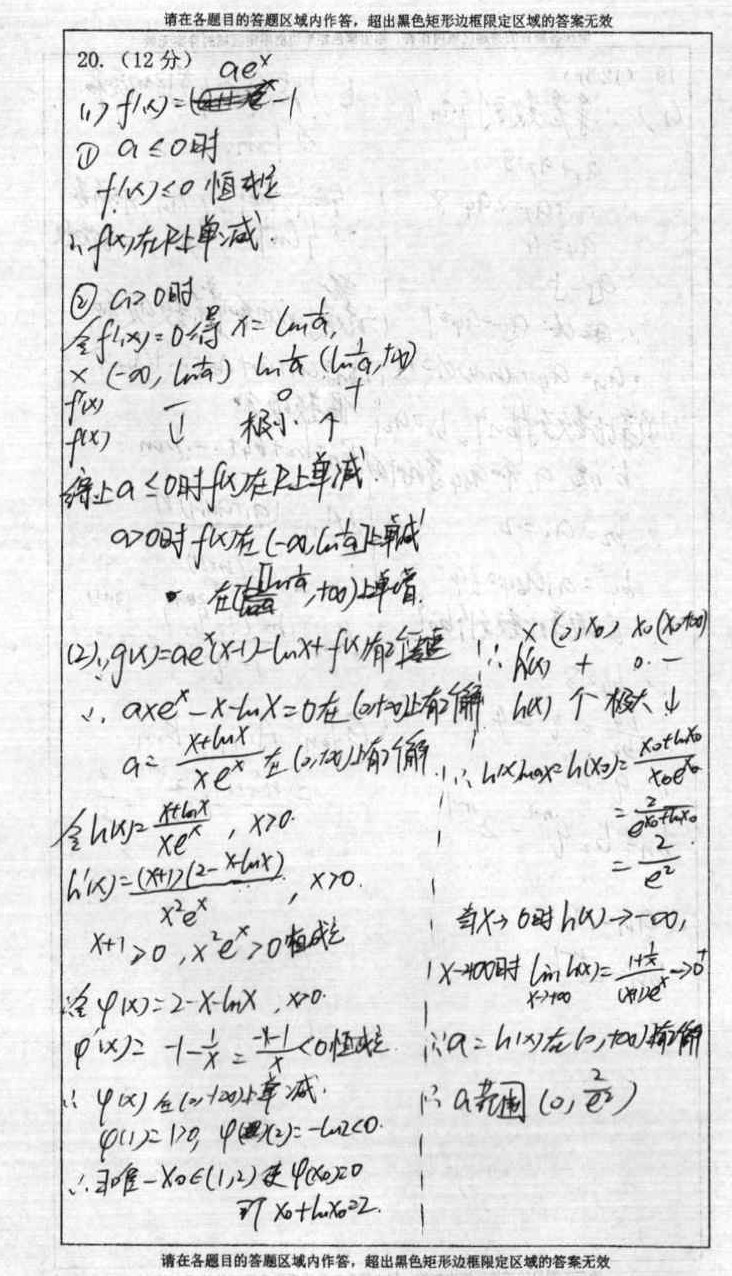 请在各题目的答题区域内作答，超出黑色矩形边框限定区域的答案无效
20.（12分）
(1) f'(x)=ae^x-1
① a≤0时
f'(x)≤0恒成立
∴f(x)在R上单减
② a>0时
令f'(x)=0得 x=ln1/a,
x (-∞, ln1/a) ln1/a (ln1/a,+∞)
f'(x) - 0 +
f(x) ↓ 极小 ↑
综上a≤0时f(x)在R上单减
a>0时 f(x)在(-∞,ln1/a]上单减
在[ln1/a,+∞)上单增.
(2)∵g(x)=ae^x(x-1)-lnx+f(x)有2个零点
∴ axe^x-x-lnx=0在(0,+∞)上有2个解
a=(x+lnx)/(xe^x) 在(0,+∞)上有2个解
令h(x)=(x+lnx)/(xe^x), x>0.
h'(x)=(x+1)(2-x-lnx)/(x²e^x), x>0.
x+1>0, x²e^x>0恒成立
令φ(x)=2-x-lnx, x>0.
φ'(x)=-1-1/x=(-x-1)/x<0恒成立.
∴ φ(x)在(0,+∞)上单减.
φ(1)=1>0, φ(2)=-ln2<0.
∴∃唯一x₀∈(1,2)使φ(x₀)=0
即 x₀+lnx₀=2.
∴ x (0,x₀) x₀ (x₀,+∞)
h'(x) + 0 -
h(x) ↑ 极大 ↓
∴h(x)max=h(x₀)=(x₀+lnx₀)/(x₀e^x₀)
=2/e^(x₀+lnx₀)
=2/e²
当x→0时h(x)→-∞,
x→+∞时 lim x→+∞ h(x)=(1+1/x)/((x+1)e^x)→0⁺
∴a=h(x)在(0,+∞)有2解
∴a范围(0,2/e²)
请在各题目的答题区域内作答，超出黑色矩形边框限定区域的答案无效